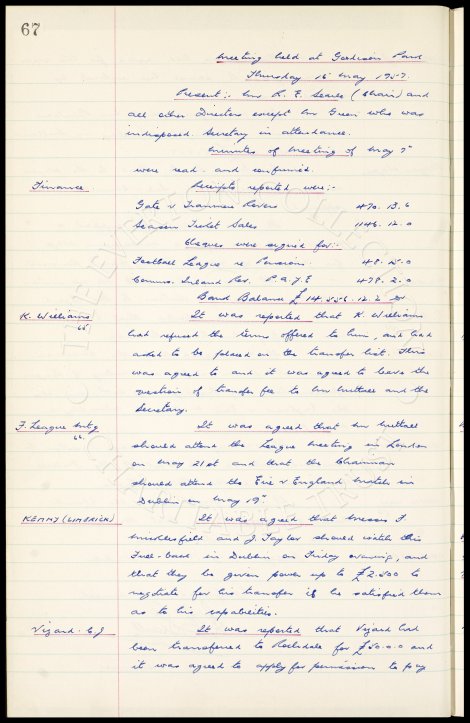 67
Meeting held at Goodison Park
Thursday 16 May 1957.
Present:- Mr R. E. Searle (Chair) and
all other Directors except Mr Green who was
indisposed. Secretary in attendance.
Minutes of Meeting of May 7th
were read and confirmed.
Finance
Receipts reported were:-
Gate v Tranmere Rovers 470. 13. 6
Season Ticket Sales 1146. 12. 0
Cheques were signed for:-
Football League re Pensions. 48. 15. 0
Comms. Inland Rev. P.A.Y.E 478. 2. 0
Bank Balance £14. 12. 2
K. Williams
It was reported that K. Williams
had refused the terms offered to him, and had
asked to be placed on the transfer list. This
was agreed to and it was agreed to leave the
question of transfer fee to Mr Nuttall and the
Secretary.
F. League Mtg
It was agreed that Mr Nuttall
should attend the League Meeting in London
on May 21st and that the Chairman
should attend the Eire v England match in
Dublin on May 19th
KEMMY (LIMERICK)
It was agreed that Messrs F.
and J. Taylor should watch this
Full-back in Dublin on Friday evening, and
that they be given power up to £2.500 to
negotiate for his transfer if he satisfied them
as to his capabilities.
Vizard. C.J
It was reported that Vizard had
been transferred to Rochdale for £50.0.0 and
it was agreed to apply for permission to pay
THE EVERTON COLLECTION
CHARITABLE TRUST